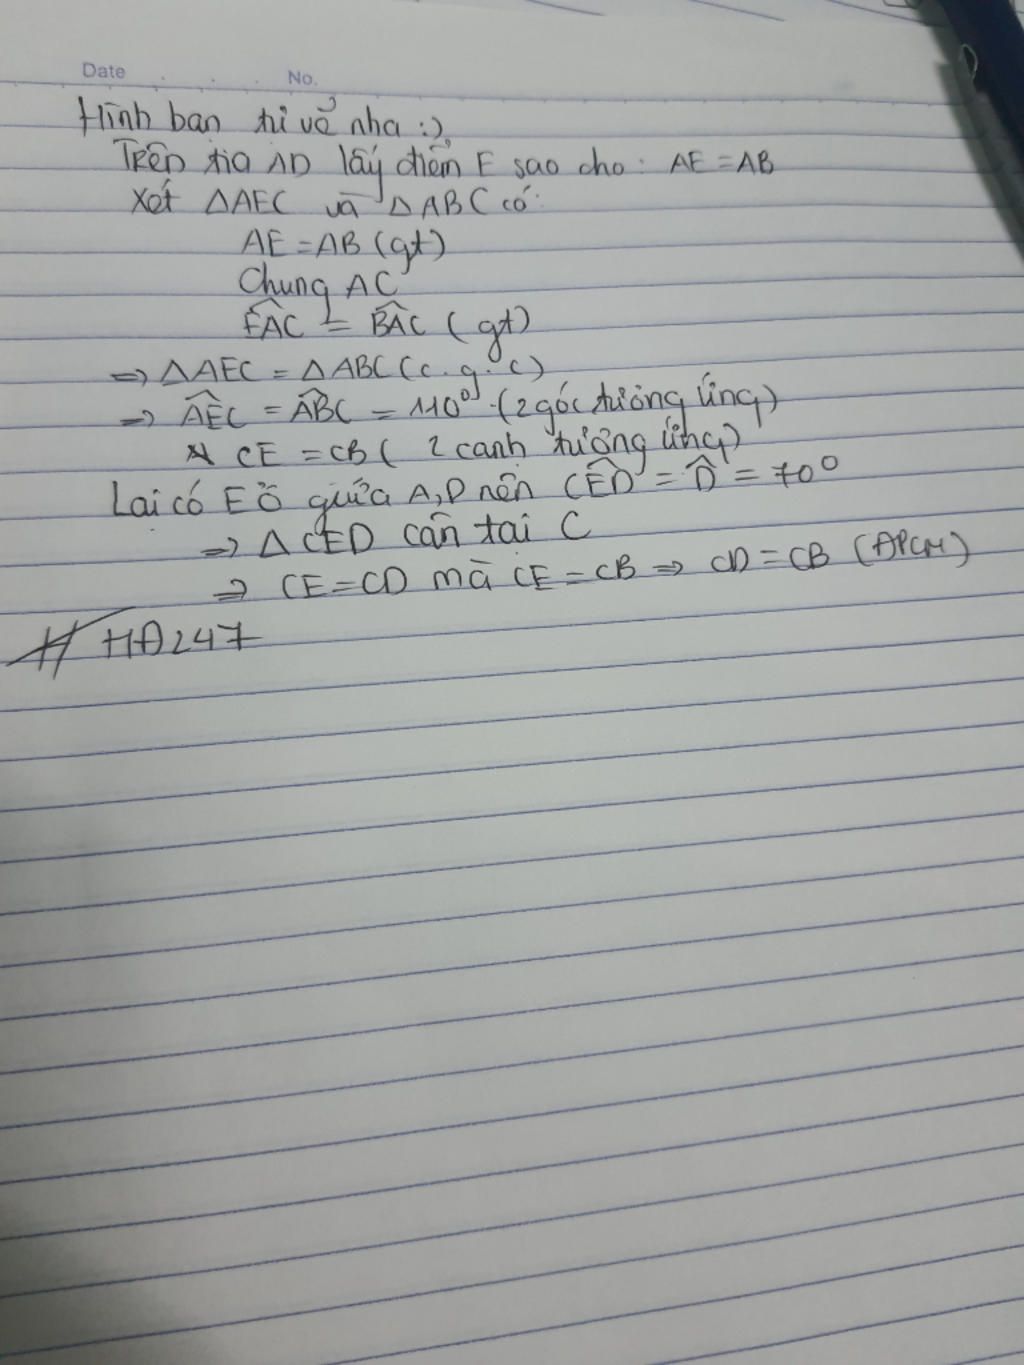 Date . . . No.
Hình bạn tự vẽ nha :)
Trên tia AD lấy điểm E sao cho: AE = AB
Xét ΔAEC và ΔABC có:
AE = AB (gt)
Chung AC
EAC = BAC (gt)
⇒ ΔAEC = ΔABC (c.g.c)
⇒ AEC = ABC = 110° (2 góc tương ứng)
CE = CB (2 cạnh tương ứng)
Lại có E ở giữa A, D nên CED = D = 70°
⇒ ΔCED cân tại C
⇒ CE = CD mà CE = CB ⇒ CD = CB (ĐPCM)
# HĐ247